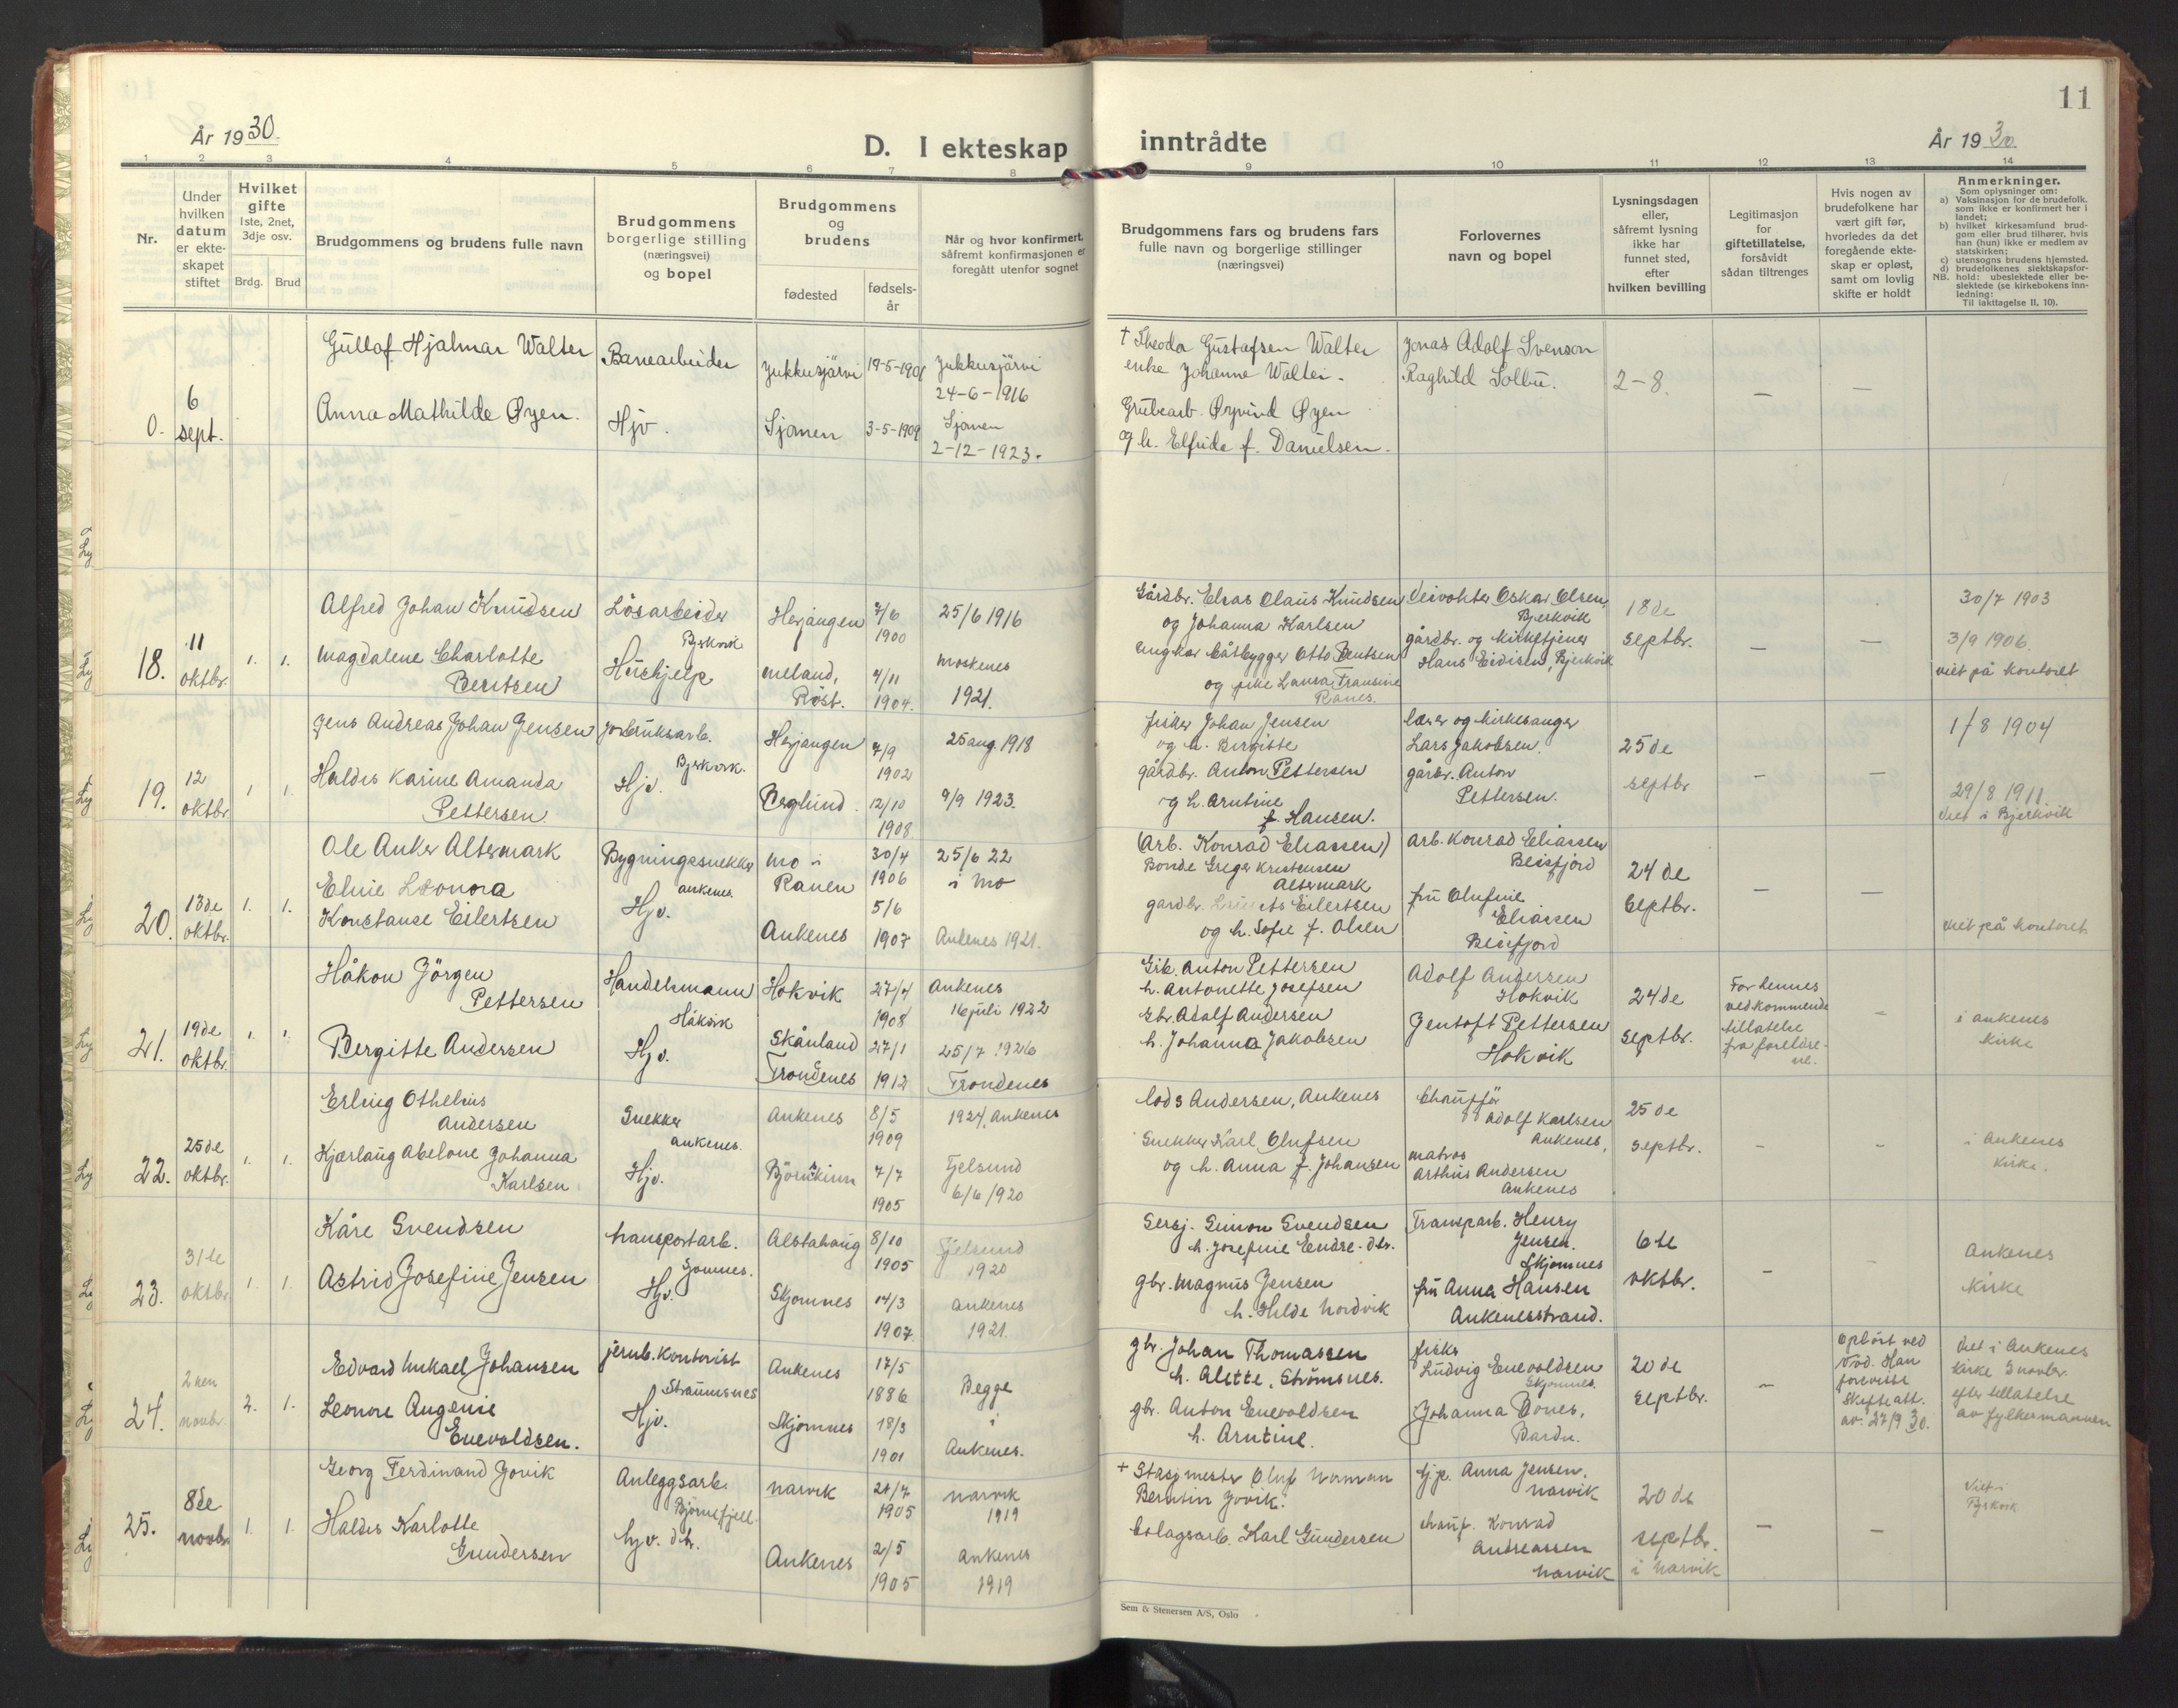 År 1930.
D. I ekteskap
inntrådte
11
År 1930
1
2
3
4
5
6
7
8
9
10
11
12
13
14
Nr.
Under
hvilken
datum
er ekte-
skapet
stiftet
Hvilket
gifte
1ste, 2net,
3dje osv.
Brdg.
Brud
Brudgommens og brudens fulle navn
Brudgommens
borgerlige stilling
(næringsvei)
og bopel
Brudgommens
og
brudens
fødested
fødsels-
år
Når og hvor konfirmert,
såfremt konfirmasjonen er
foregått utenfor sognet
Brudgommens fars og brudens fars
fulle navn og borgerlige stillinger
(næringsvei)
Forlovernes
navn og bopel
Lysningsdagen
eller,
såfremt lysning
ikke har
funnet sted,
efter
hvilken bevilling
Legitimasjon
for
giftetillatelse,
forsåvidt
sådan tiltrenges
Hvis nogen av
brudefolkene har
vært gift før,
hvorledes da det
foregående ekte-
skap er opløst,
samt om lovlig
skifte er holdt
Anmerkninger.
Som oplysninger om:
a) Vaksinasjon for de brudefolk,
som ikke er konfirmert her i
landet;
b) hvilket kirkesamfund brud-
gom eller brud tilhører, hvis
han (hun) ikke er medlem av
statskirken;
c) utensogns brudens hjemsted.
d) brudefolkenes slektskapsfor-
hold: ubeslektede eller be-
slektede (se kirkebokens inn-
ledning:
NB. Til iakttagelse II, 10).
0.
6
sept.
Hjalmar Walter
Anna Mathilde Øyen.
Banearbeider
Hjv.
Jukkusjärvi
Sjønen
19-5-1901
3-5-1909
Jukkusjärvi
24-6-1916
Sjønen
2-12-1923.
† Theodor Gustafsen Walter
enke Johanne Walter.
Grubearb. Øyvind Øyen
og h. Elfride f. Danielsen.
Jonas Adolf Svenson
Raghild Solbu.
2-8.
—
—
18.
11
oktbr.
1.
1.
Alfred Johan Knudsen
Magdalene Charlotte
Berntsen
Løsarbeider
Bjerkvik
Hushjelp
Herjangen
Meland,
Røst.
7/6
1900
4/11
1904.
25/6 1916
Moskenes
1921.
Gårdbr. Elias Claus Knudsen
og Johanna Karlsen
Ungkar Båtbygger Otto Bentsen
og pike Laura Fransine
Ranes.
Veivokter Oskar Olsen,
Bjerkvik
gårdbr. og kirketjener
Hans Eidisen, Bjerkvik
18de
septbr.
—
—
30/7 1903
3/9 1906.
viet på kontoret
19.
12
oktbr.
1
1.
Jens Andreas Johan Jensen
Haldis Karine Amanda
Pettersen
Jordbruksarb.
Bjerkvik.
Hjv.
Herjangen
Berglund.
7/9
1902
12/10
1908.
25 aug. 1918
9/9 1923.
fisker Johan Jensen
og h. Birgitte
gårdbr. Anton Pettersen
og h. Arntine
f. Hansen.
lærer og kirkesanger
Lars Jakobsen.
gårbr. Anton
Pettersen.
25de
septbr.
—
—
1/8 1904
29/8 1911.
viet i Bjerkvik
20.
13de
oktbr.
1.
1.
Ole Anker Altermark
Eline Leonora
Konstanse Eilertsen
Bygningssnekker
Ankenes.
Hjv.
Mo i
Ranen
Ankenes
30/4
1906
5/6
1907
25/6 22
i Mo
Ankenes 1921.
(Arb. Konrad Eliassen)
Bonde Greger Kristensen
Altermark
gardbr. Eilertsen
og h. Sofie f. Olsen
Arb. Konrad Eliassen
Beisfjord
fru Olufine
Eliassen
Beisfjord
24de
Septbr.
—
—
viet på kontoret.
21.
19de
oktbr.
1.
1.
Håkon Jörgen
Pettersen
Bergitte Andersen
Handelsmann
Håkvik
Hjv.
Hokvik
Skånland
Trondenes
27/4
1908
27/1
1912
Ankenes
16 juli 1922
25/7 1926
Trondenes
Grb. Anton Pettersen
h. Antonette Josefsen
Gbr. Adolf Andersen
h. Johanna Jakobsen
Adolf Andersen
Hokvik
Gentoft Pettersen
Hokvik
24de
septbr.
For hennes
vedkommende
tillatelse
fra foreldre-
ne.
-
i Ankenes
kirke
22.
25de
oktbr.
1.
1.
Erling Othelius
Andersen
Kjærlaug Abelone Johanna
Karlsen
Snekker
Ankenes.
Hjv.
Ankenes
8/5
1909
7/7
1905
1924, Ankenes
Tjelsund
6/6 1920
lods Andersen, Ankenes
Snekker Karl Olufsen
og h. Anna f. Johansen
Chauffør
Adolf Karlsen
Ankenes,
matros
Arthur Andersen
Ankenes
25de
septbr.
-
-
i Ankenes
kirke.
23.
31te
oktbr.
1.
1.
Kåre Svendsen
Astrid Josefine Jensen
transportarb.
Hjv.
Alstahaug
Skjomnes
8/10
1905
14/3
1907
Tjelsund
1920
Ankenes
1921.
Sersj. Simon Svendsen
h. Josefine Endre-dtr.
gbr. Magnus Jensen
h. Hilde Nordvik
Transparb. Henry
Jensen.
Skjomnes
fru Anna Hansen
Ankenesstrand.
6te
oktbr.
-
-
Ankenes
kirke
24.
2nen
novbr.
2.
1.
Edvard Mikael Johansen
Leonore Augenie
Enevoldsen.
jernb. kontorist
Straumsnes
Hjv.
Ankenes
Skjomnes
17/5
1886
18/3
1901
Begge
i
Ankenes.
gbr. Johan Thomassen
h. Alette, Strømsnes.
gbr. Anton Enevoldsen
h. Arntine.
fisker
Ludvig Enevoldsen
Skjomnes.
Johanna Bones,
Bardu.
20de
septbr.
-
Opløst ved
død. Han
foreviste
skifteatt.
av 27/9 30.
viet i Ankenes
kirke 2 novbr.
efter tillatelse
av fylkesmannen
25.
8de
novbr
1.
1.
Georg Ferdinand Jovik
Haldis Karlotte
Gundersen
Anleggsarb.
Bjørnefjell.
hjv. dtr.
Narvik
Ankenes
21/7
1905
2/5
1905
Narvik
1919
Ankenes
1919
+ Stasjmester Oluf Norman
Berntin Jovik.
bolagsarb. Karl Gundersen
tjp. Anna Jensen,
Narvik
chauf. Konrad
Andreassen
Narvik
20de
septbr.
i Narvik
—
—
Viet i
Bjerkvik
Sem & Stenersen A/S, Oslo